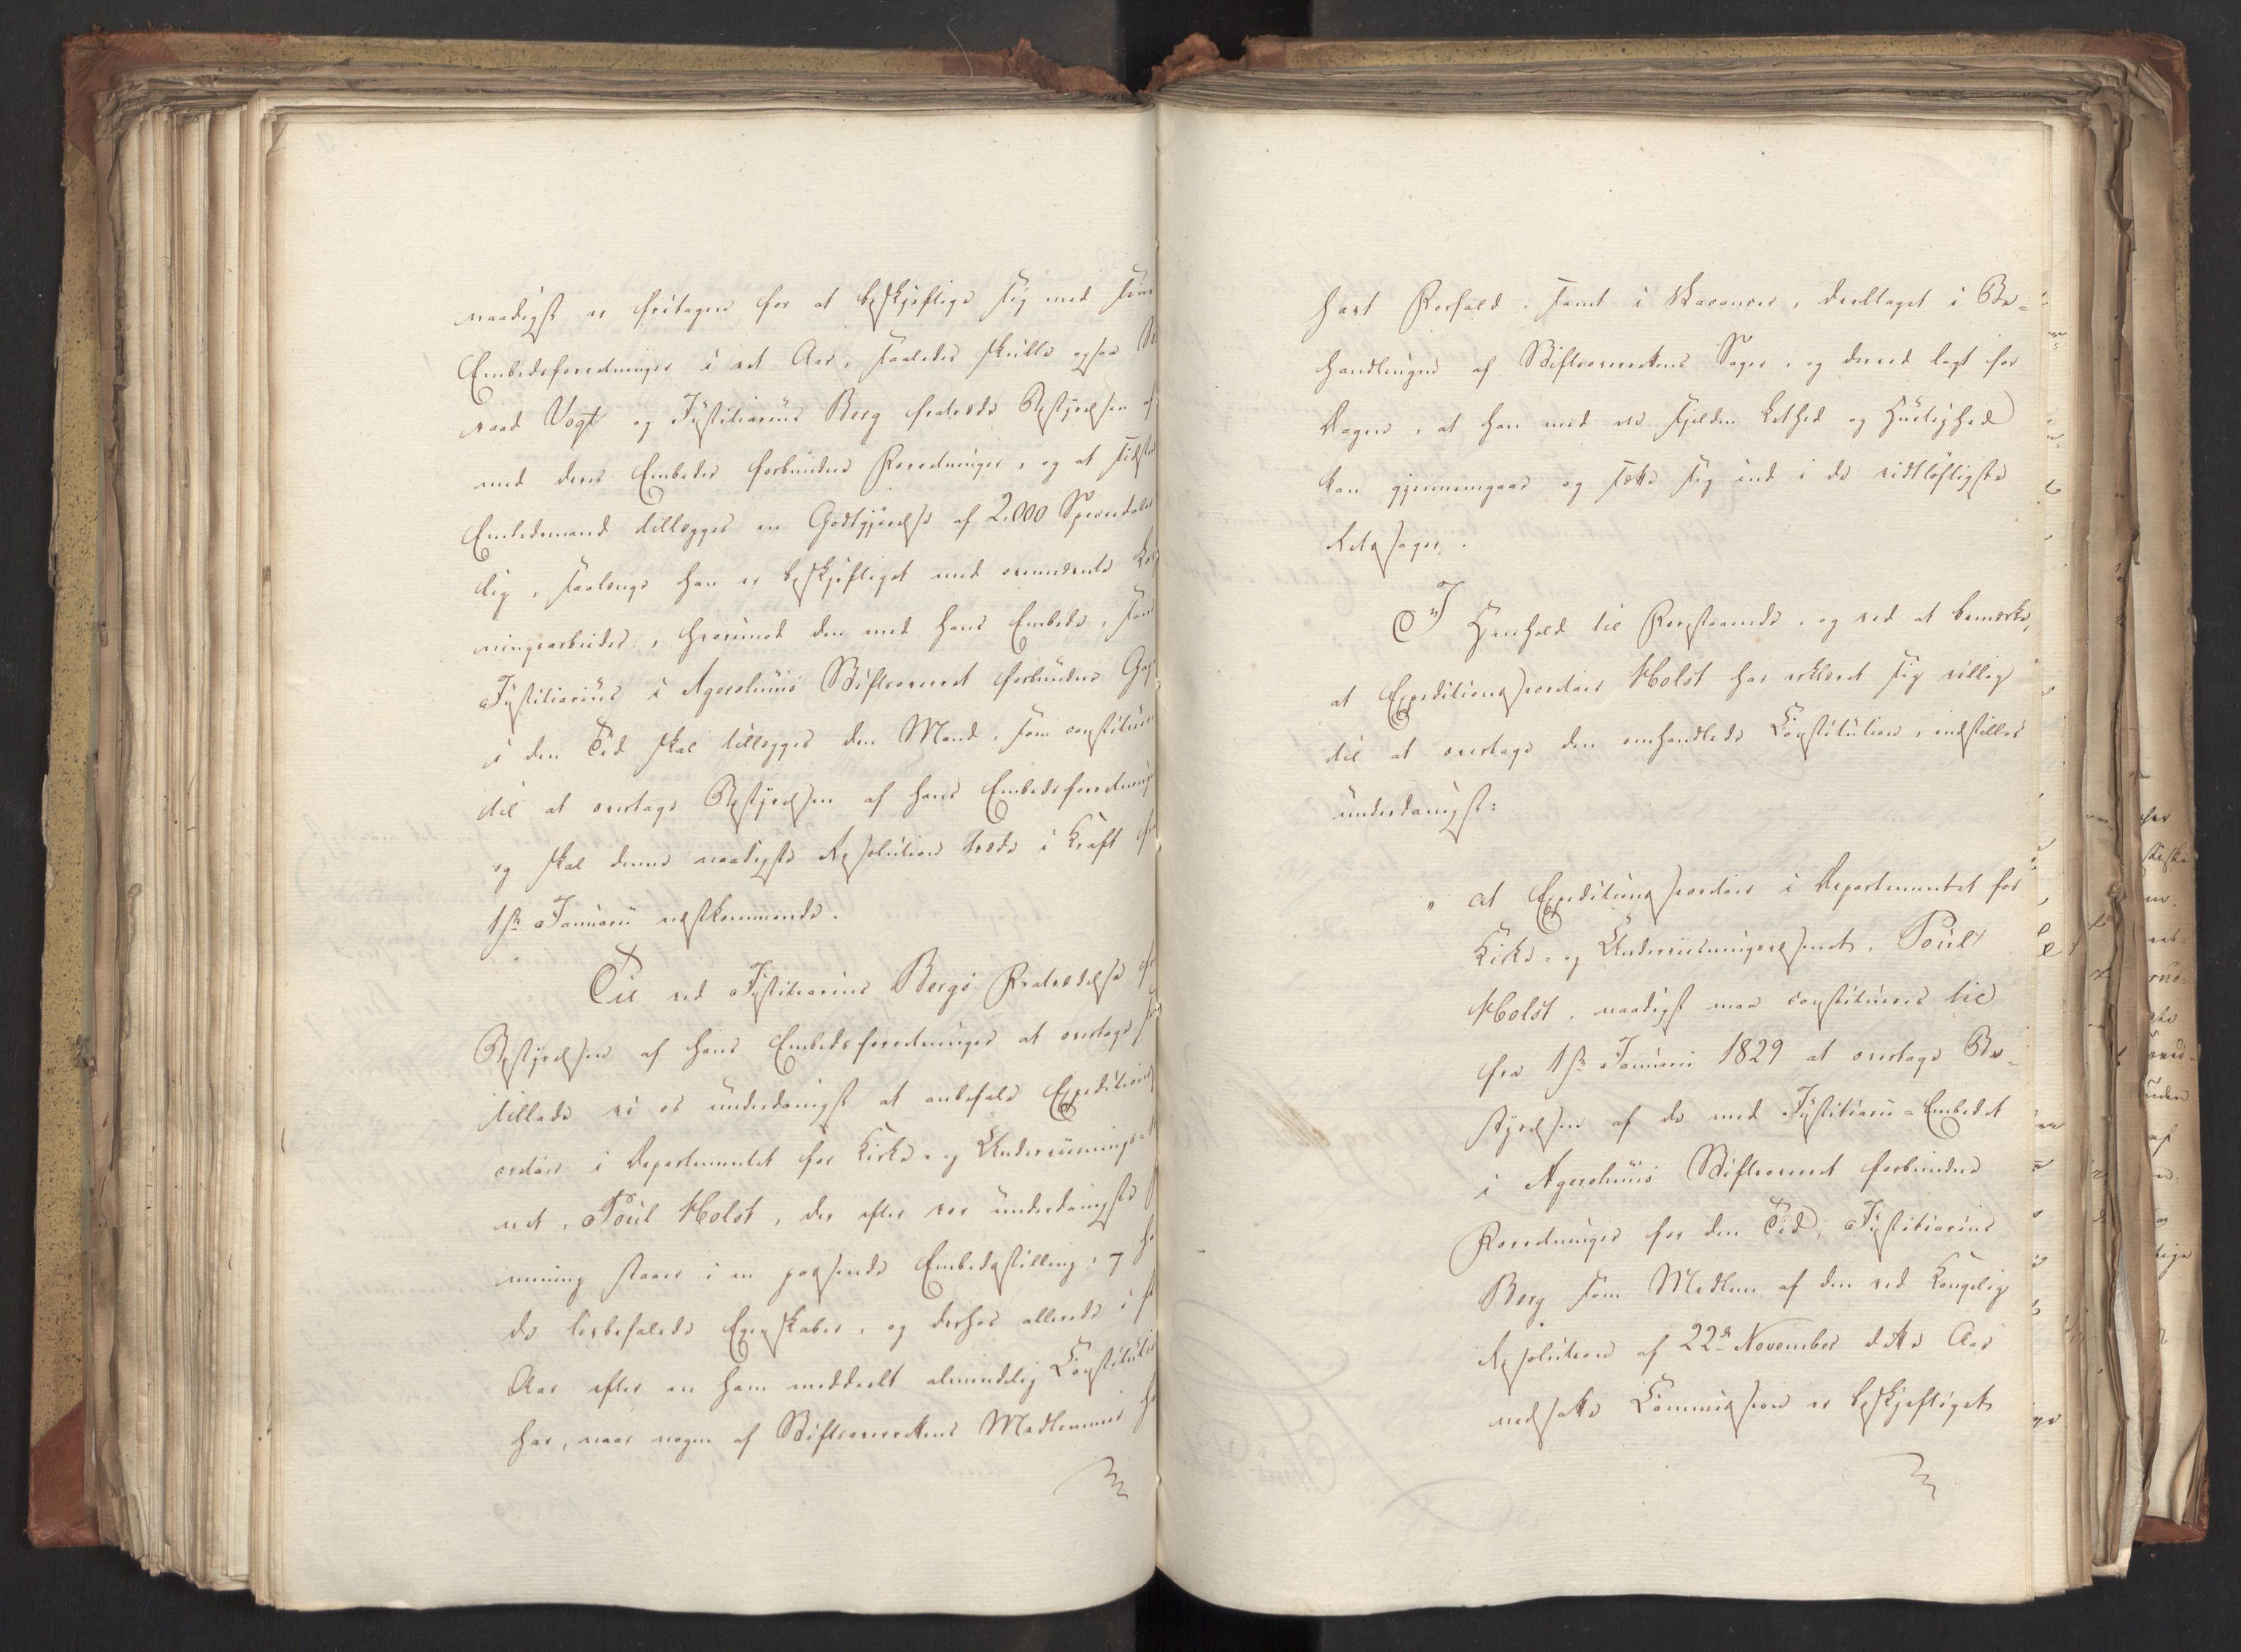 naadigst er fritagen for at beskjeftige sig med sine
Embedsforretninger i eet Aar, saaledes skulle ogsaa
raad Vogt og Justitiarius Berg fratræde Bestyrelsen af
med deres Embeder forbundne Forretninger, og at sidste
Embedsmand tillægges en Godtgjørelse af 2,000 Speciedaler
lig, saalænge han er beskjeftiget med ovennævnte
ningsarbeider, hvorimod den med hans Embede, som
Justitiarius i Agershuus Stiftsoverret forbundne Gage
i den Tid skal tillægges den Mand, som constitueres
til at overtage Bestyrelsen af hans Embedsforretninger
og skal denne naadigste Resolution træde i Kraft fra
1ste Januarii næstkommende.
Til ved Justitiarius Bergs Fratrædelse fra
Bestyrelsen af hans Embedsforretninger at overtage
tillade vi os underdanigst at anbefale Expeditions
cretair i Departementet for Kirke- og Underviisnings-
net, Poul Holst, der efter vor underdanigste
mening staaer i en passende Embedsstilling, og
de lovbefalede Egenskaber, og derhos allerede i
Aar efter en ham meddeelt almindelig Constitution
har, naar nogen af Stiftsoverrettens Medlemmer
havt Forfald, samt i Vacancer, deeltaget i Be-
handlingen af Stiftsoverrettens Sager, og derved lagt for
Dagen, at han med en sjelden Lethed og Hurtighed
kan gjennemgaae og sætte sig ind i de vidtløftigste
Retssager.
I Henhold til Forestaaende, og ved at bemærke,
at Expeditionssecretair Holst har erklæret sig villig
til at overtage den omhandlede Constitution, indstilles
underdanigst:
" at Expeditionssecretair i Departementet for
Kirke- og Underviisningsvæsenet, Poul
Holst, naadigst maa constitueres til
fra 1ste Januarii 1829 at overtage Be-
styrelsen af de med Justitiarii-Embedet
i Agershuus Stiftsoverret forbundne
Forretninger for den Tid, Justitiarius
Berg som Medlem af den ved Kongelig
Resolution af 22de November dette Aar
nedsatte Commission er beskjeftiget